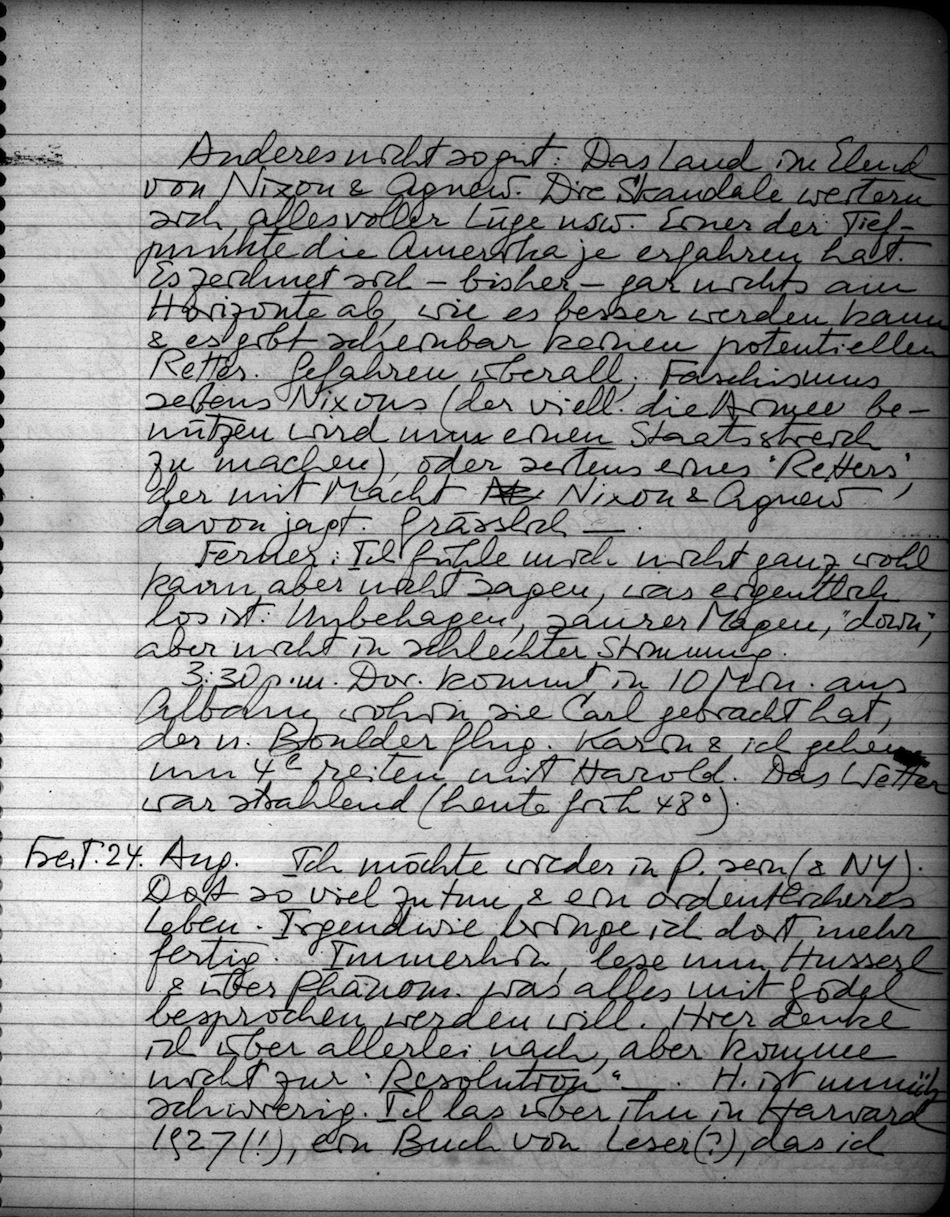 Anderes nicht so gut: Das Land im Elend
von Nixon & Agnew. Die Skandale weitern
sich, alles voller Lüge usw. Einer der Tief-
punkte die Amerika je erfahren hat.
Es zeichnet sich – bisher – gar nichts am
Horizonte ab, wie es besser werden kann
& es gibt scheinbar keinen potentiellen
Retter. Gefahren überall; Faschismus
seitens Nixons (der viell. die Armee be-
nützen wird um einen Staatsstreich
zu machen), oder seitens eines "Retters",
der mit Macht Nixon & Agnew
davon jagt. Grässlich —.
Ferner: Ich fühle mich nicht ganz wohl
kann aber nicht sagen, was eigentlich
los ist: Unbehagen, saurer Magen, "down",
aber nicht in schlechter Stimmung.
3:30 p.m. Dor. kommt in 10 Min. aus
Albany, wohin sie Carl gebracht hat,
der n. Boulder flug. Karin & ich gehen
um 4h reiten mit Harold. Das Wetter
war strahlend (heute früh 48°).
Freit. 24. Aug. Ich möchte wieder in P. sein (& NY).
Dort so viel zu tun & ein ordentlicheres
Leben. Irgendwie bringe ich dort mehr
fertig. Immerhin, lese nun Husserl
& über Phänom. was alles mit Gödel
besprochen werden will. Hier denke
ich über allerlei nach, aber komme
nicht zur "Resolution" —. H. ist unnütz
schwierig. Ich las über ihn in Harvard
1927(!), ein Buch von Leser(?), das ich